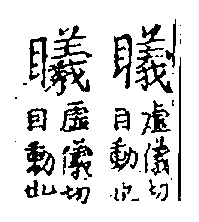 䂀
虛儀切
目動也
䂀
虛儀切
目動也